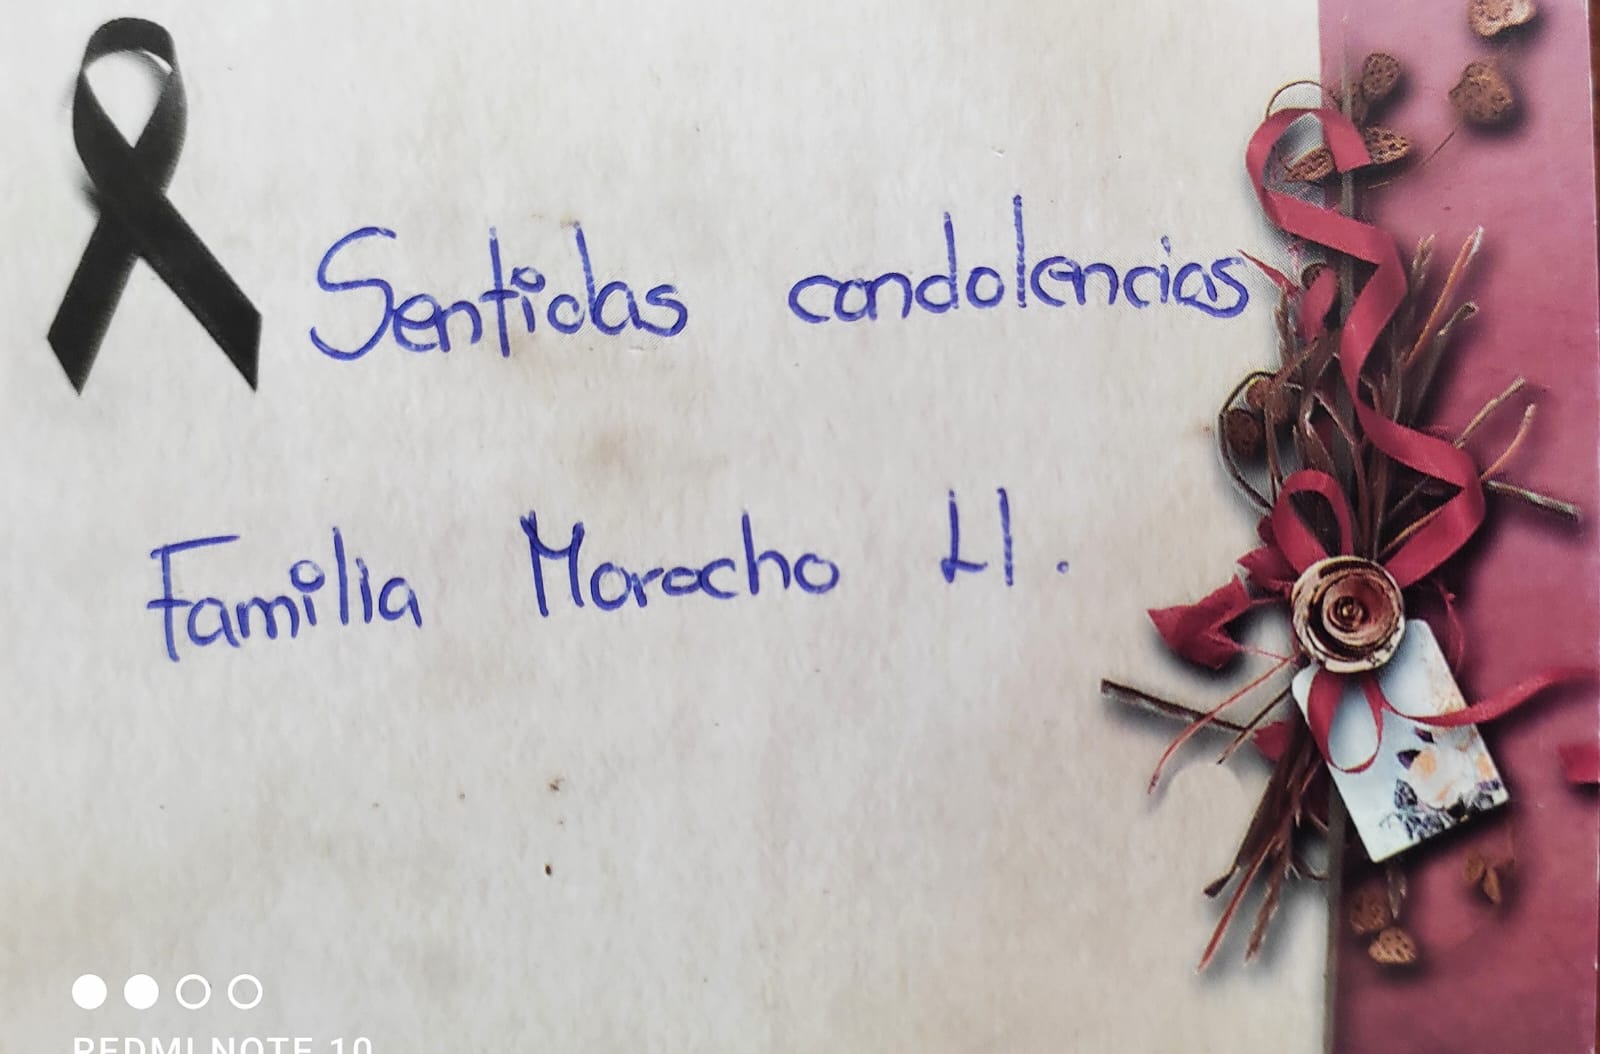 Sentidas condolencias
Familia Morocho Ll.
REDMI NOTE 10